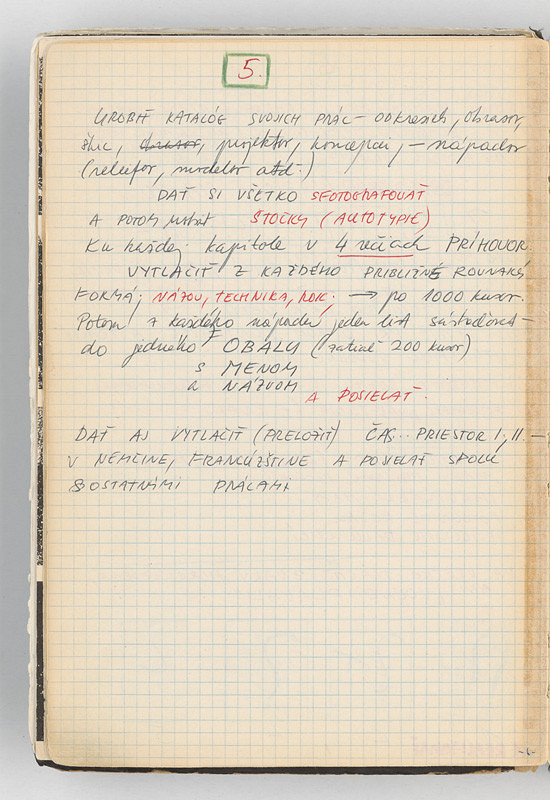 5.
UROBIŤ KATALÓG SVOJICH PRÁC – od kresieb, obrazov,
projektov, koncepcií, – nápadov
(reliefov, modelov atď.)
DAŤ SI VŠETKO SFOTOGRAFOVAŤ
A POTOM ŠTOČKY (AUTOTYPIE)
Ku každej kapitole v 4 rečiach PRÍHOVOR
VYTLAČIŤ Z KAŽDÉHO PRIBLIŽNE ROVNAKÝ
FORMÁT, NÁZOV, TECHNIKA, ROK. → po 1000 kusov.
Potom z každého nápadu jeden list sústreďovať –
do jedného OBALU (zatiaľ 200 kusov)
S MENOM
a NÁZVOM
A POSIELAŤ.
DAŤ AJ VYTLAČIŤ (PRELOŽIŤ) ČAS.. PRIESTOR I, II –
V NEMČINE, FRANCÚZŠTINE A POSIELAŤ SPOLU
S OSTATNÝMI PRÁCAMI